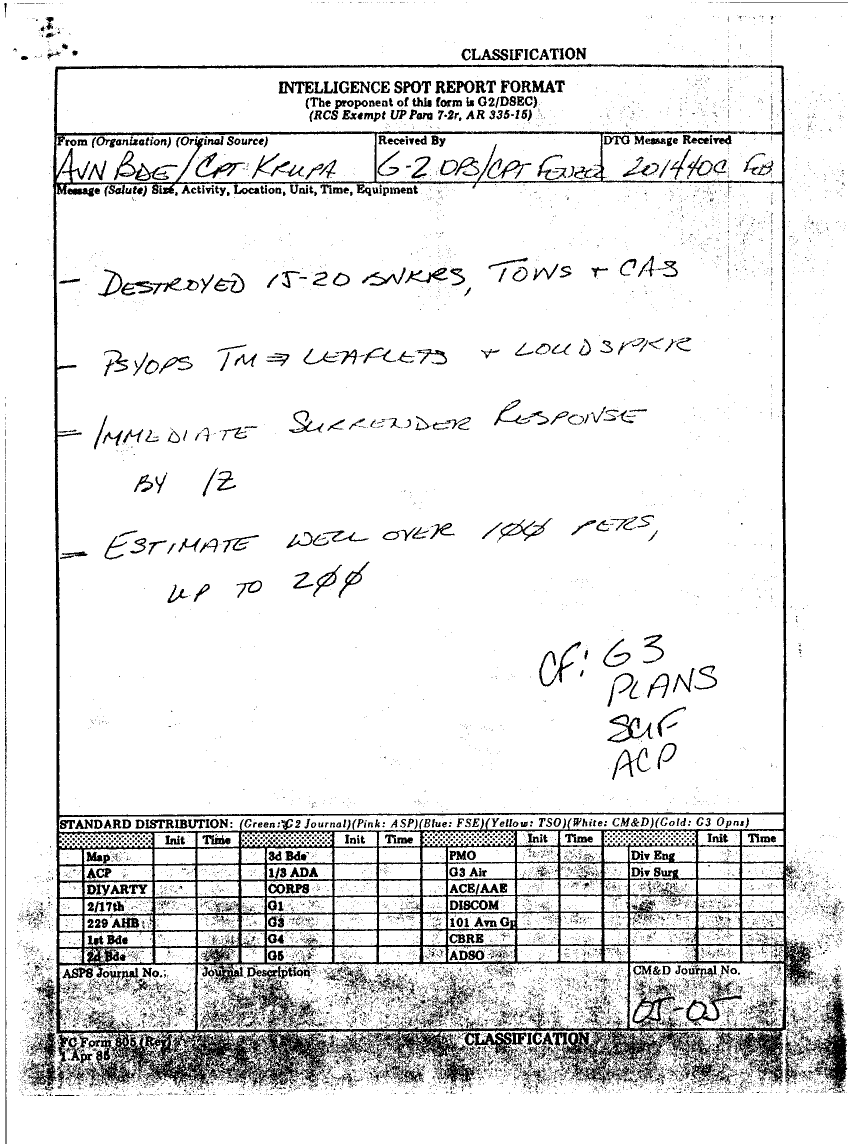 CLASSIFICATION
INTELLIGENCE SPOT REPORT FORMAT
(The proponent of this form is G2/DSEC)
(RCS Exempt UP Para 7-2r, AR 335-15)
From (Organization) (Original Source) Received By DTG Message Received
AVN BDE/CPT KRUPA G-2 OPS/CPT 201440C FEB
Message (Salute) Size, Activity, Location, Unit, Time, Equipment
- DESTROYED 15-20 BNKRS, TOWS + CAS
- PSYOPS TM ⇒ LEAFLETS + LOUDSPKR
= IMMEDIATE SURRENDER RESPONSE
BY IZ
= ESTIMATE WELL OVER 100 PERS,
UP TO 200
CF: G3
PLANS
SCIF
ACP
STANDARD DISTRIBUTION: (Green: G2 Journal)(Pink: ASP)(Blue: FSE)(Yellow: TSO)(White: CM&D)(Gold: G3 Opns)
Init Time Init Time Init Time Init Time
Map 3d Bde PMO Div Eng
ACP 1/3 ADA G3 Air Div Surg
DIVARTY CORPS ACE/AAE
2/17th G1 DISCOM
229 AHB G3 101 Avn Gp
1st Bde G4 CBRE
2d Bde G5 ADSO
ASPS Journal No.: Journal Description CM&D Journal No.
05-05
FC Form 805 (Rev) CLASSIFICATION
1 Apr 85